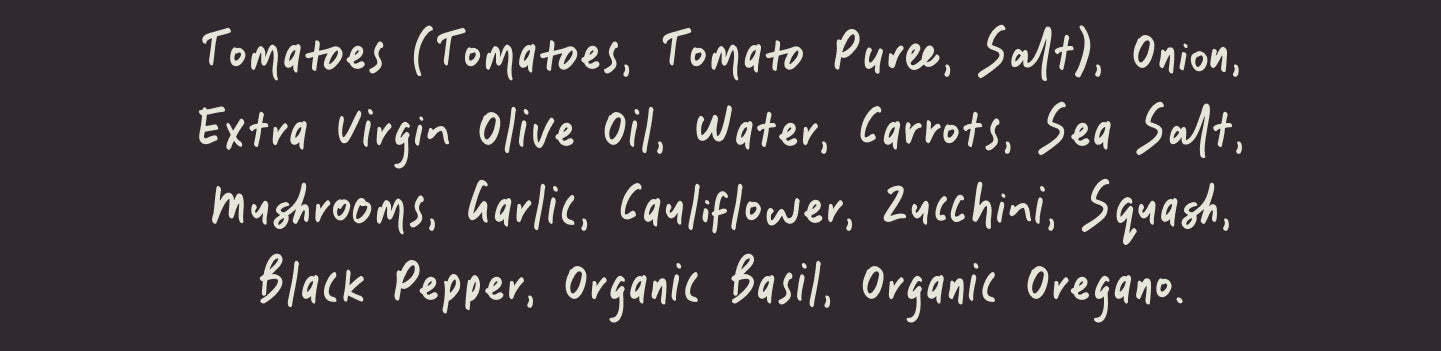 Tomatoes (Tomatoes, Tomato Puree, Salt), Onion,
Extra Virgin Olive Oil, Water, Carrots, Sea Salt,
Mushrooms, Garlic, Cauliflower, Zucchini, Squash,
Black Pepper, Organic Basil, Organic Oregano.